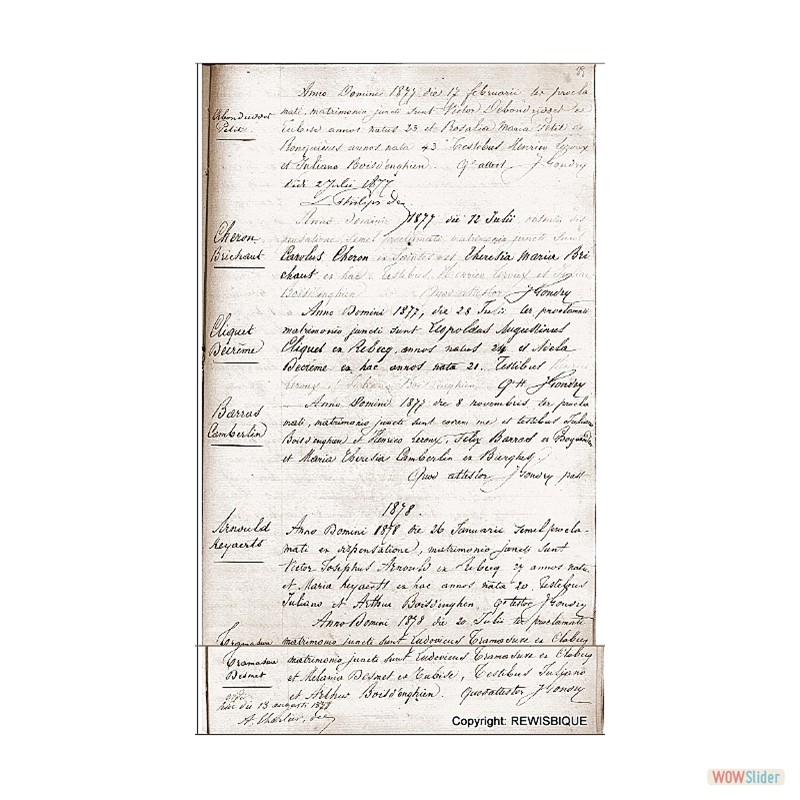 Anno Domini 1877 die 17 februarii ter procla
mati, matrimonio juncti sunt Victor Debondridder ex
Petit
Tubise annos natus 23 et Rosalia Maria Petit de
Ronquières annos nata 43. Testibus Henrico Leroux
et Juliano Boisdenghien. Qd attest. J Gondry
Vidi 2 Julii 1877
L. Philips dec
Anno Domini 1877 die 12 Julii, obtenta dis
pensatione, semel proclamati, matrimonio juncti sunt
Cheron
Brichaut
Carolus Cheron ex Saintes et Theresia Maria Bri
chaut ex hac. Testibus Henrico Leroux et Juliano
Boisdenghien. Quod attestor J Gondry
Anno Domini 1877, die 28 Julii ter proclamati
Cliquet
Decrême
matrimonio juncti sunt Leopoldus Augustinus
Cliquet ex Rebecq, annos natus 24 et Nicola
Decrême ex hac annos nata 21. Testibus
Leroux, Juliano Boisdenghien. Qd att J Gondry
Barras
Camberlin
Anno Domini 1877 die 8 novembris, ter procla
mati, matrimonio juncti sunt coram me et testibus Juliano
Boisdenghien et Henrico Leroux, Felix Barras ex
et Maria Theresia Camberlin ex Bierghes.
Quod attestor J Gondry past
1878.
Arnould
Keyaerts
Anno Domini 1878 die 26 Januarii semel procla-
mati ex dispensatione, matrimonio juncti sunt
Victor Josephus Arnould ex Rebecq 27 annos natus
et Maria Keyaerts ex hac annos nata 20. Testibus
Juliano et Arthur Boisdenghien. Qd testor J Gondry
Anno Domini 1878 die 20 Julii ter proclamati
Tramasure
matrimonio juncti sunt Ludovicus Tramasure ex Clabecq
Tramasure
Desmet
matrimonio juncti sunt Ludovicus Tramasure ex Clabecq
et Melania Desmet ex Tubise, Testibus Juliano
et Arthur Boisdenghien. Quod attestor J Gondry
hac die 13 augusti 1878
Copyright: REWISBIQUE
WOWSlider